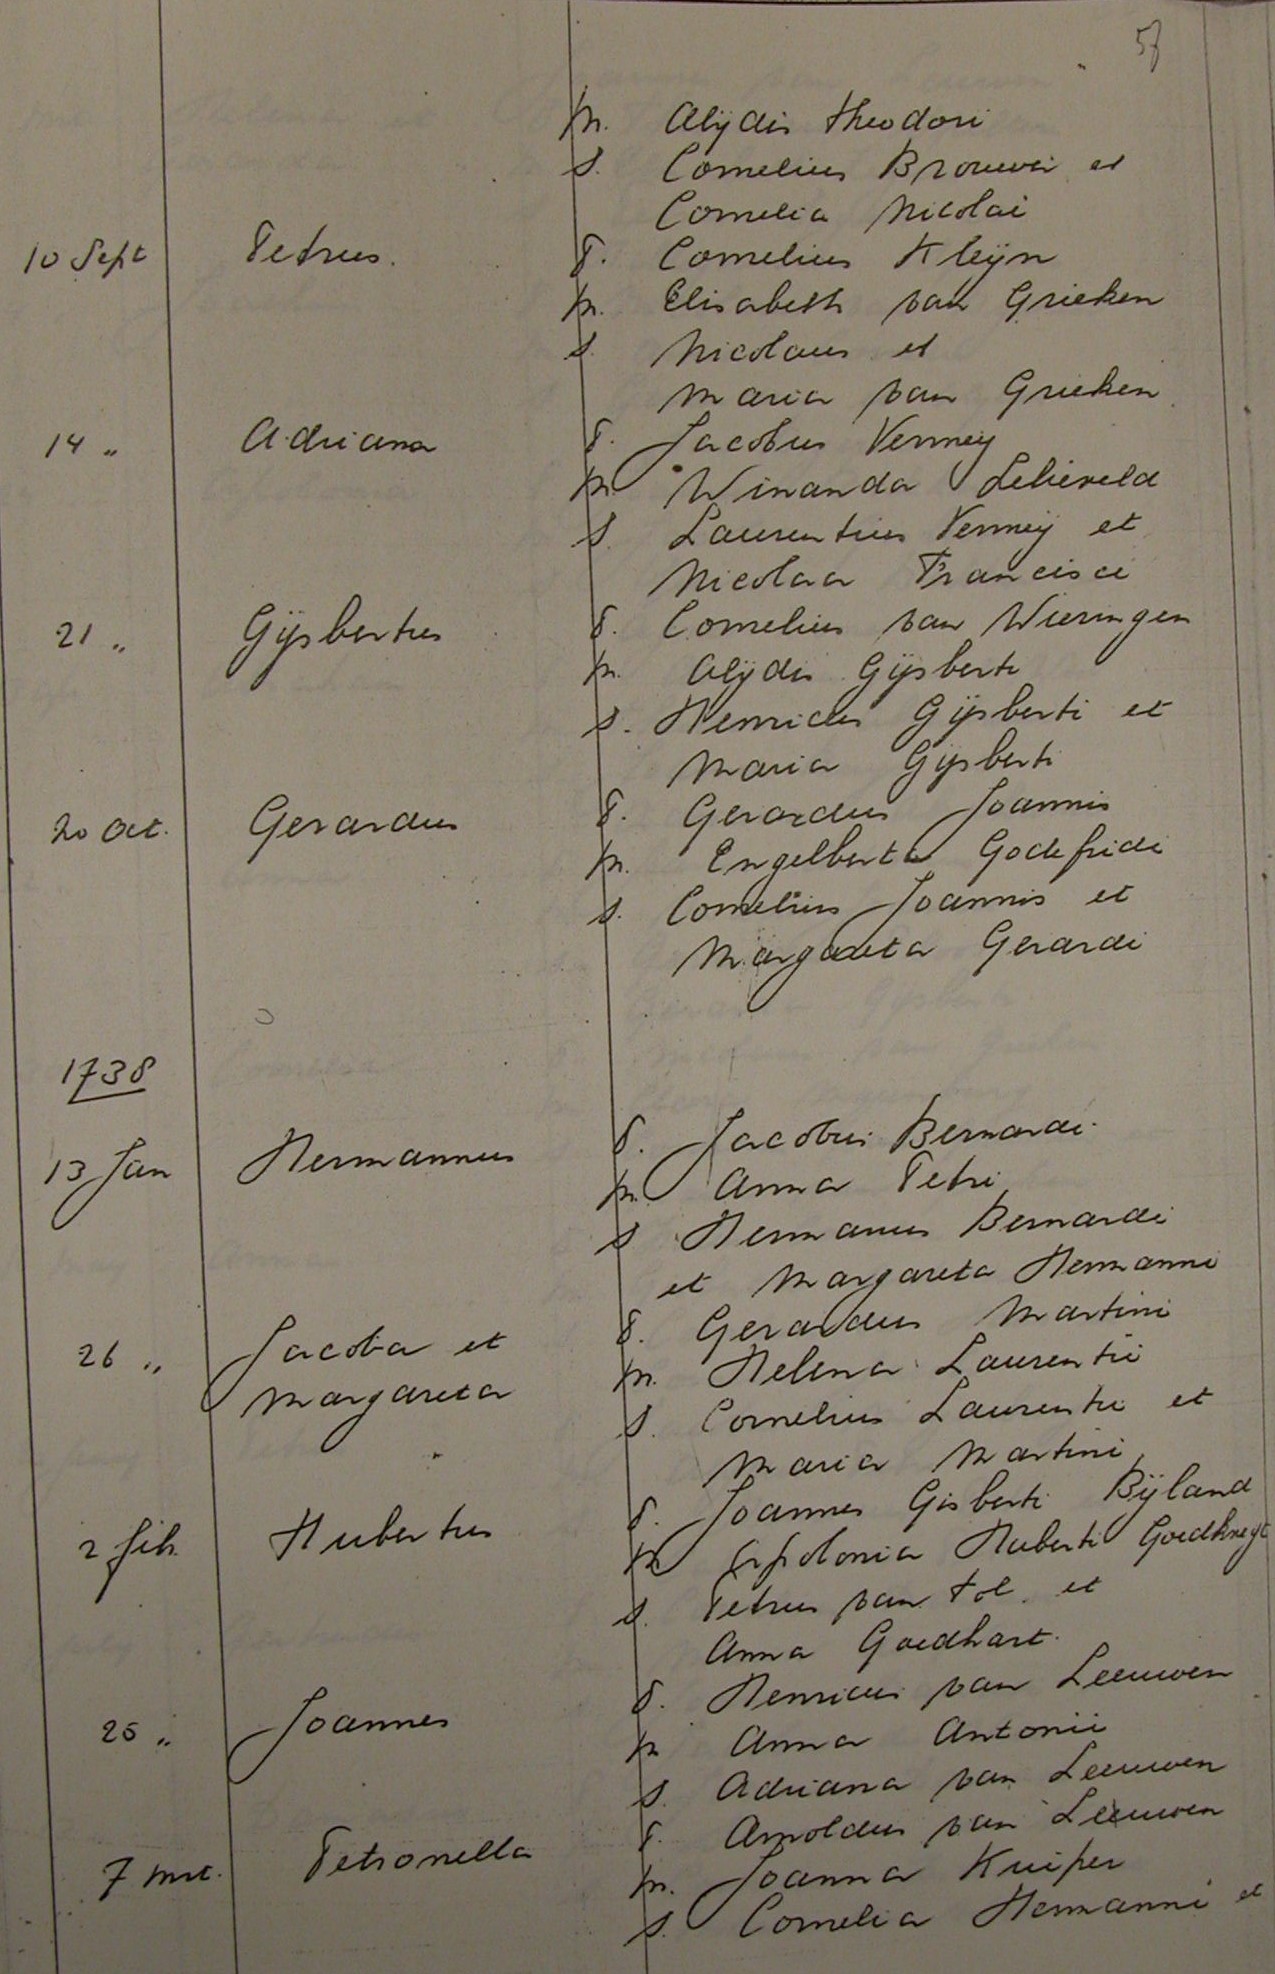 57
m. Alijdis Theodori
s. Cornelius Brouwer et
Cornelia Nicolai
10 Sept Petrus. P. Cornelius Kleijn
m. Elisabeth van Grieken
s. Nicolaus et
Maria van Grieken
14 " Adriana P. Jacobus Vermeij
m. Winanda Lelieveld
s. Laurentius Vermeij et
Nicolaa Francisci
21 " Gijsbertus P. Cornelius van Wieringen
m. Alijdis Gijsberti
s. Henricus Gijsberti et
Maria Gijsberti
20 Oct. Gerardus P. Gerardus Joannis
m. Engelberta Godefridi
s. Cornelius Joannis et
Margareta Gerardi
1738
13 Jan Hermannus P. Jacobus Bernardi
m. Anna Petri
s Hermanus Bernardi
et Margareta Hermanni
26 " Jacoba et P. Gerardus Martini
Margareta m. Helena Laurentii
s. Cornelius Laurentii et
Maria Martini
2 feb. Hubertus P. Joannes Gisberti Bijland
m Apolonia Huberti Goedknegt
s. Petrus van Tol et
Anna Goedhart.
25 " Joannes P. Henricus van Leeuwen
m Anna Antonii
s. Adriana van Leeuwen
7 mrt. Petronella P. Arnoldus van Leeuwen
m. Joanna Kuiper
s. Cornelia Hermanni et